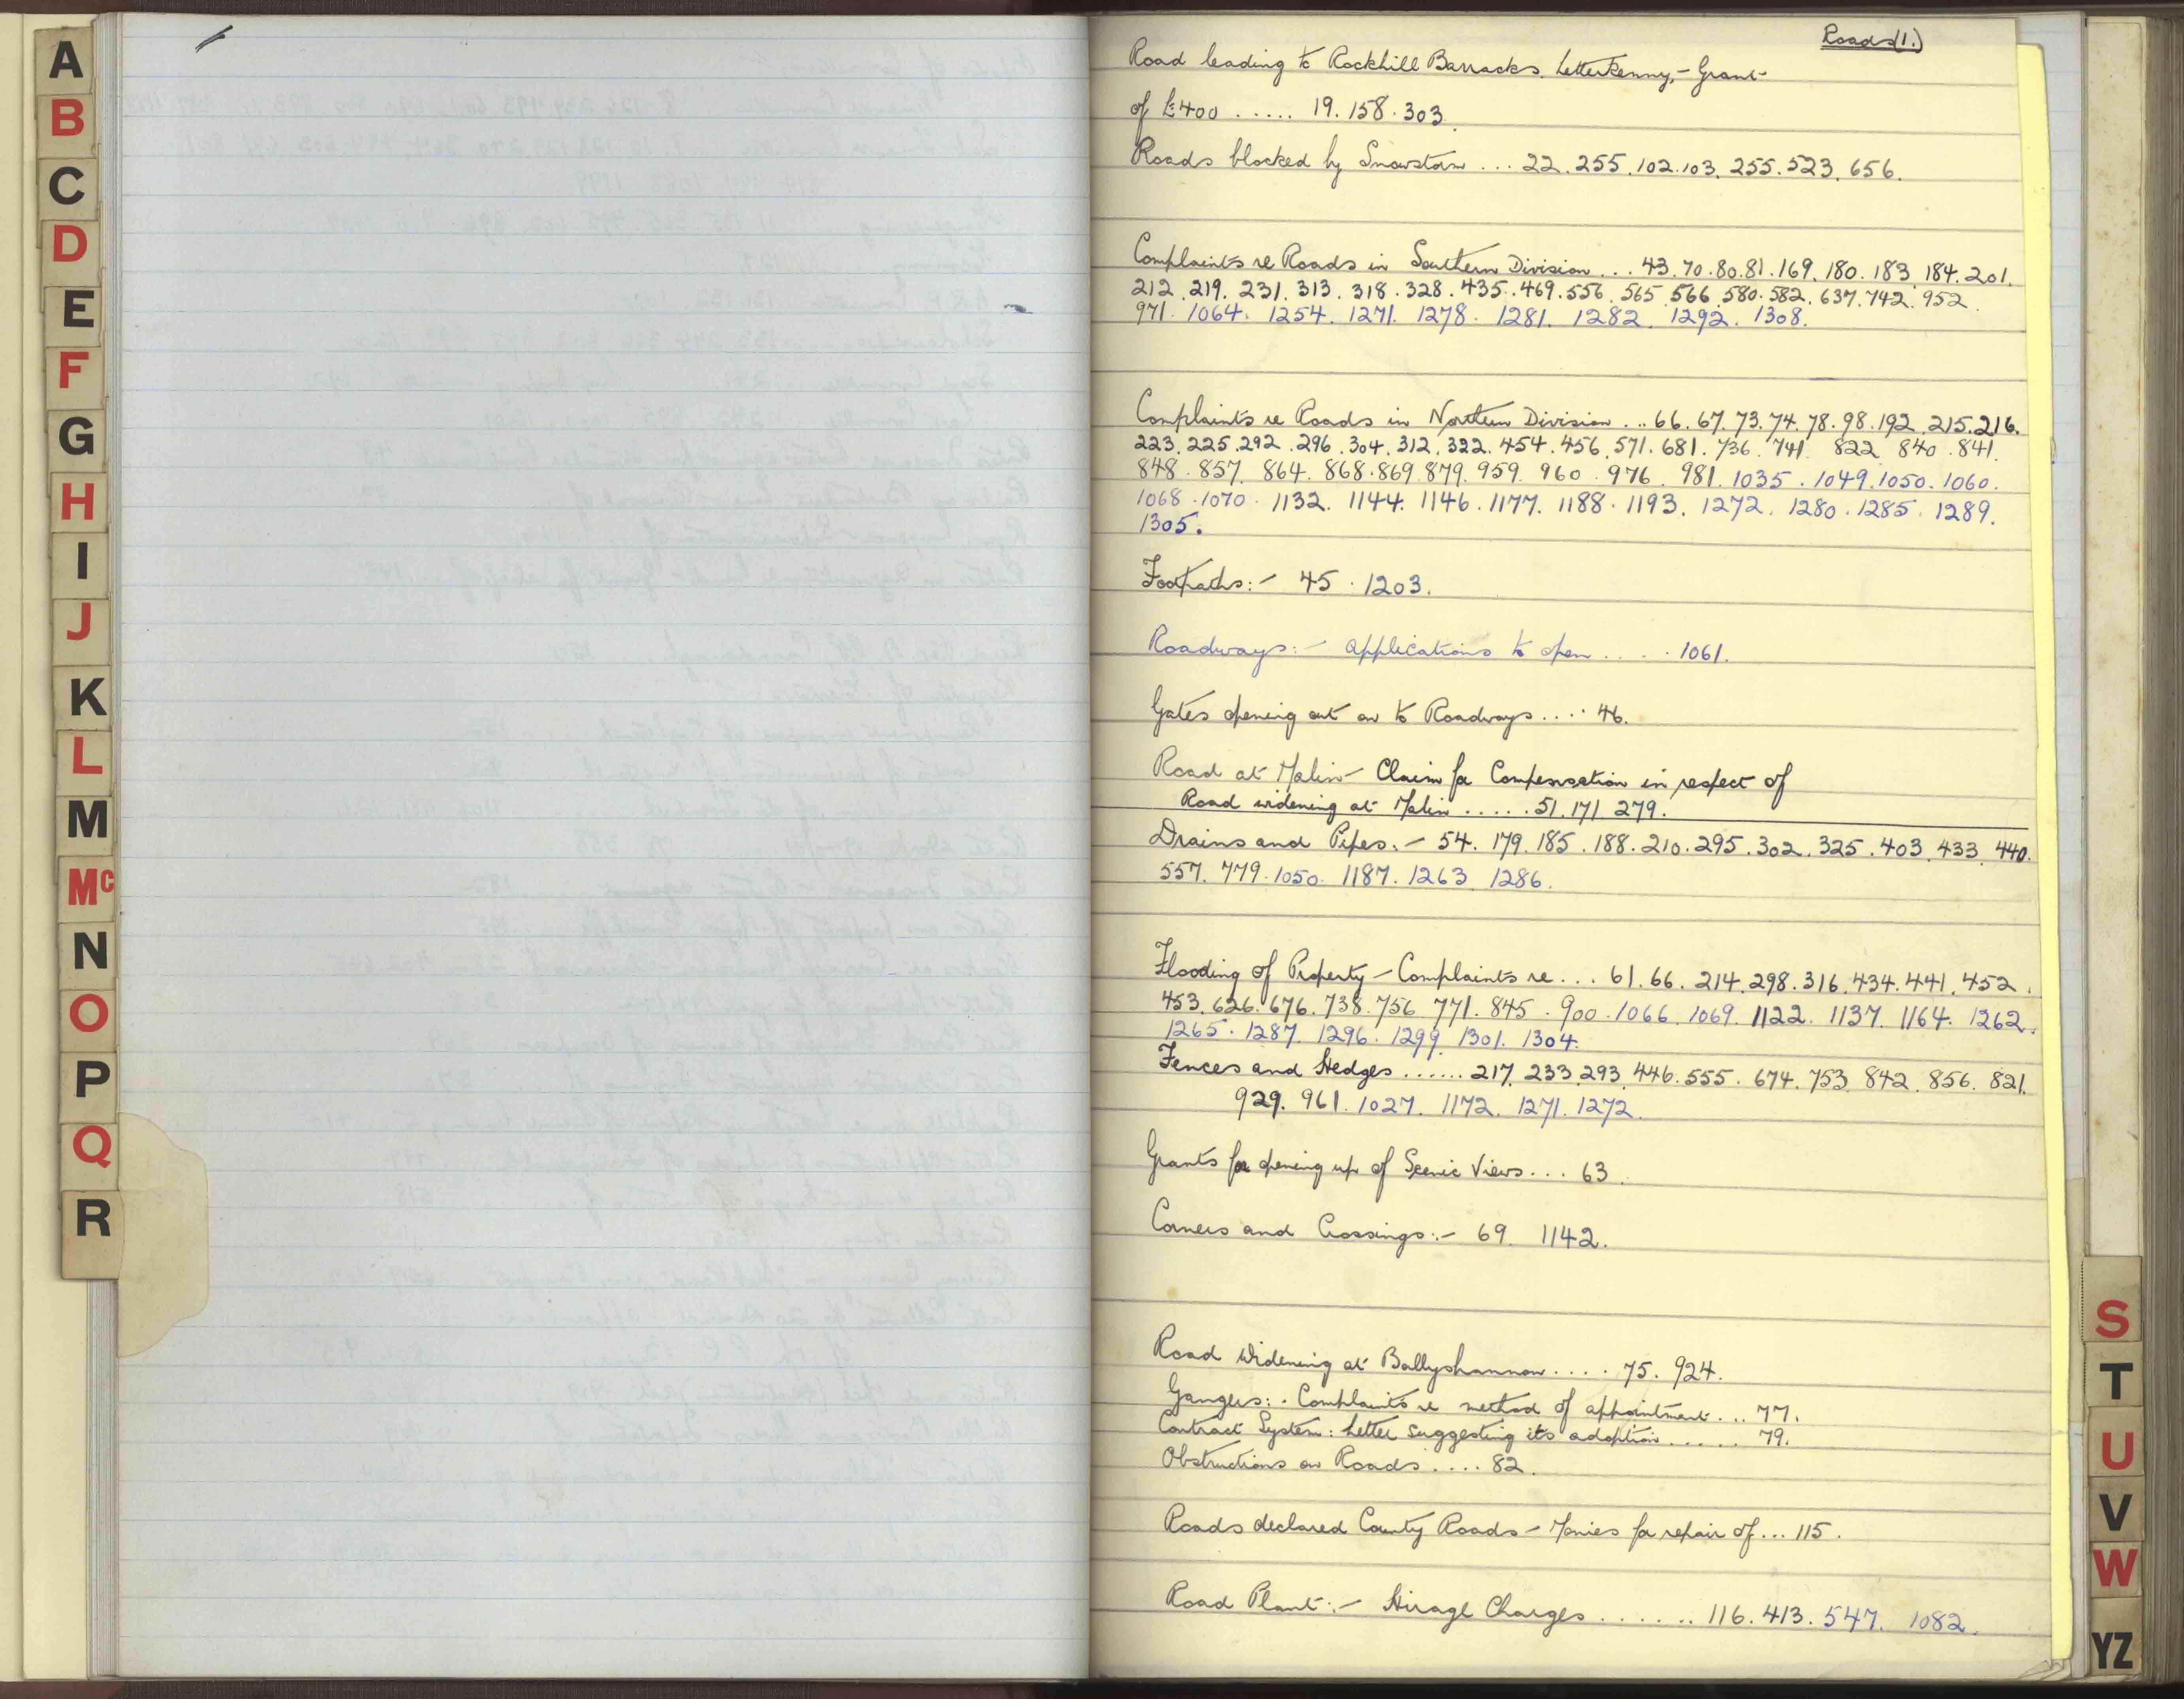 A
B
C
D
E
F
G
H
I
J
K
L
M
Mc
N
O
P
Q
R
Roads (1.)
Road leading to Rockhill Barracks. Letterkenny, - Grant
of £400 ..... 19. 158. 303.
Roads blocked by Snowstorm ... 22. 255. 102. 103. 255. 523. 656.
Complaints re Roads in Southern Division ... 43. 70. 80. 81. 169. 180. 183. 184. 201.
212. 219. 231. 313. 318. 328. 435. 469. 556. 565. 566. 580. 582. 637. 742. 952
971. 1064. 1254. 1271. 1278. 1281. 1282. 1292. 1308.
Complaints re Roads in Northern Division ... 66. 67. 73. 74. 78. 98. 192. 215. 216.
223. 225. 292. 296. 304. 312. 322. 454. 456. 571. 681. 736. 741. 822 840. 841.
848. 857. 864. 868. 869. 879. 959. 960. 976. 981. 1035. 1049. 1050. 1060.
1068. 1070. 1132. 1144. 1146. 1177. 1188. 1193. 1272. 1280. 1285. 1289.
1305.
Footpaths:- 45. 1203.
Roadways:- Applications to open .... 1061.
Gates opening out on to Roadways .... 46.
Road at Malin - Claim for Compensation in respect of
Road widening at Malin ..... 51. 171. 279.
Drains and Pipes. - 54. 179. 185. 188. 210. 295. 302. 325. 403. 433. 440.
557. 779. 1050. 1187. 1263. 1286.
Flooding of Property - Complaints re ... 61. 66. 214. 298. 316. 434. 441. 452.
453. 626. 676. 738. 756. 771. 845. 900. 1066. 1069. 1122. 1137. 1164. 1262.
1265. 1287. 1296. 1299. 1301. 1304.
Fences and Hedges ...... 217. 233. 293. 446. 555. 674. 753. 842. 856. 821.
929. 961. 1027. 1172. 1271. 1272.
Grants for opening up of Scenic Views ... 63.
Corners and Crossings:- 69. 1142.
Road Widening at Ballyshannon .... 75. 924.
Gangers:. Complaints re method of appointment ... 77.
Contract System: Letter suggesting its adoption ..... 79.
Obstructions on Roads .... 82.
Roads declared County Roads - Monies for repair of ... 115.
Road Plant:- Hirage Charges ...... 116. 413. 547. 1082.
S
T
U
V
W
YZ